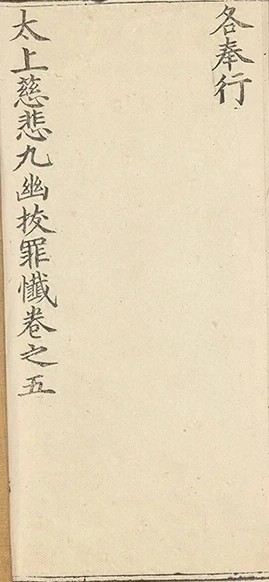 各奉行
太上慈悲九幽拔罪懺卷之五